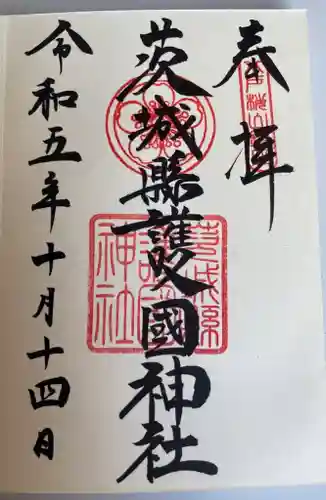 奉拝
茨城縣護國神社
令和五年十月十四日
茨城縣
護國
神社